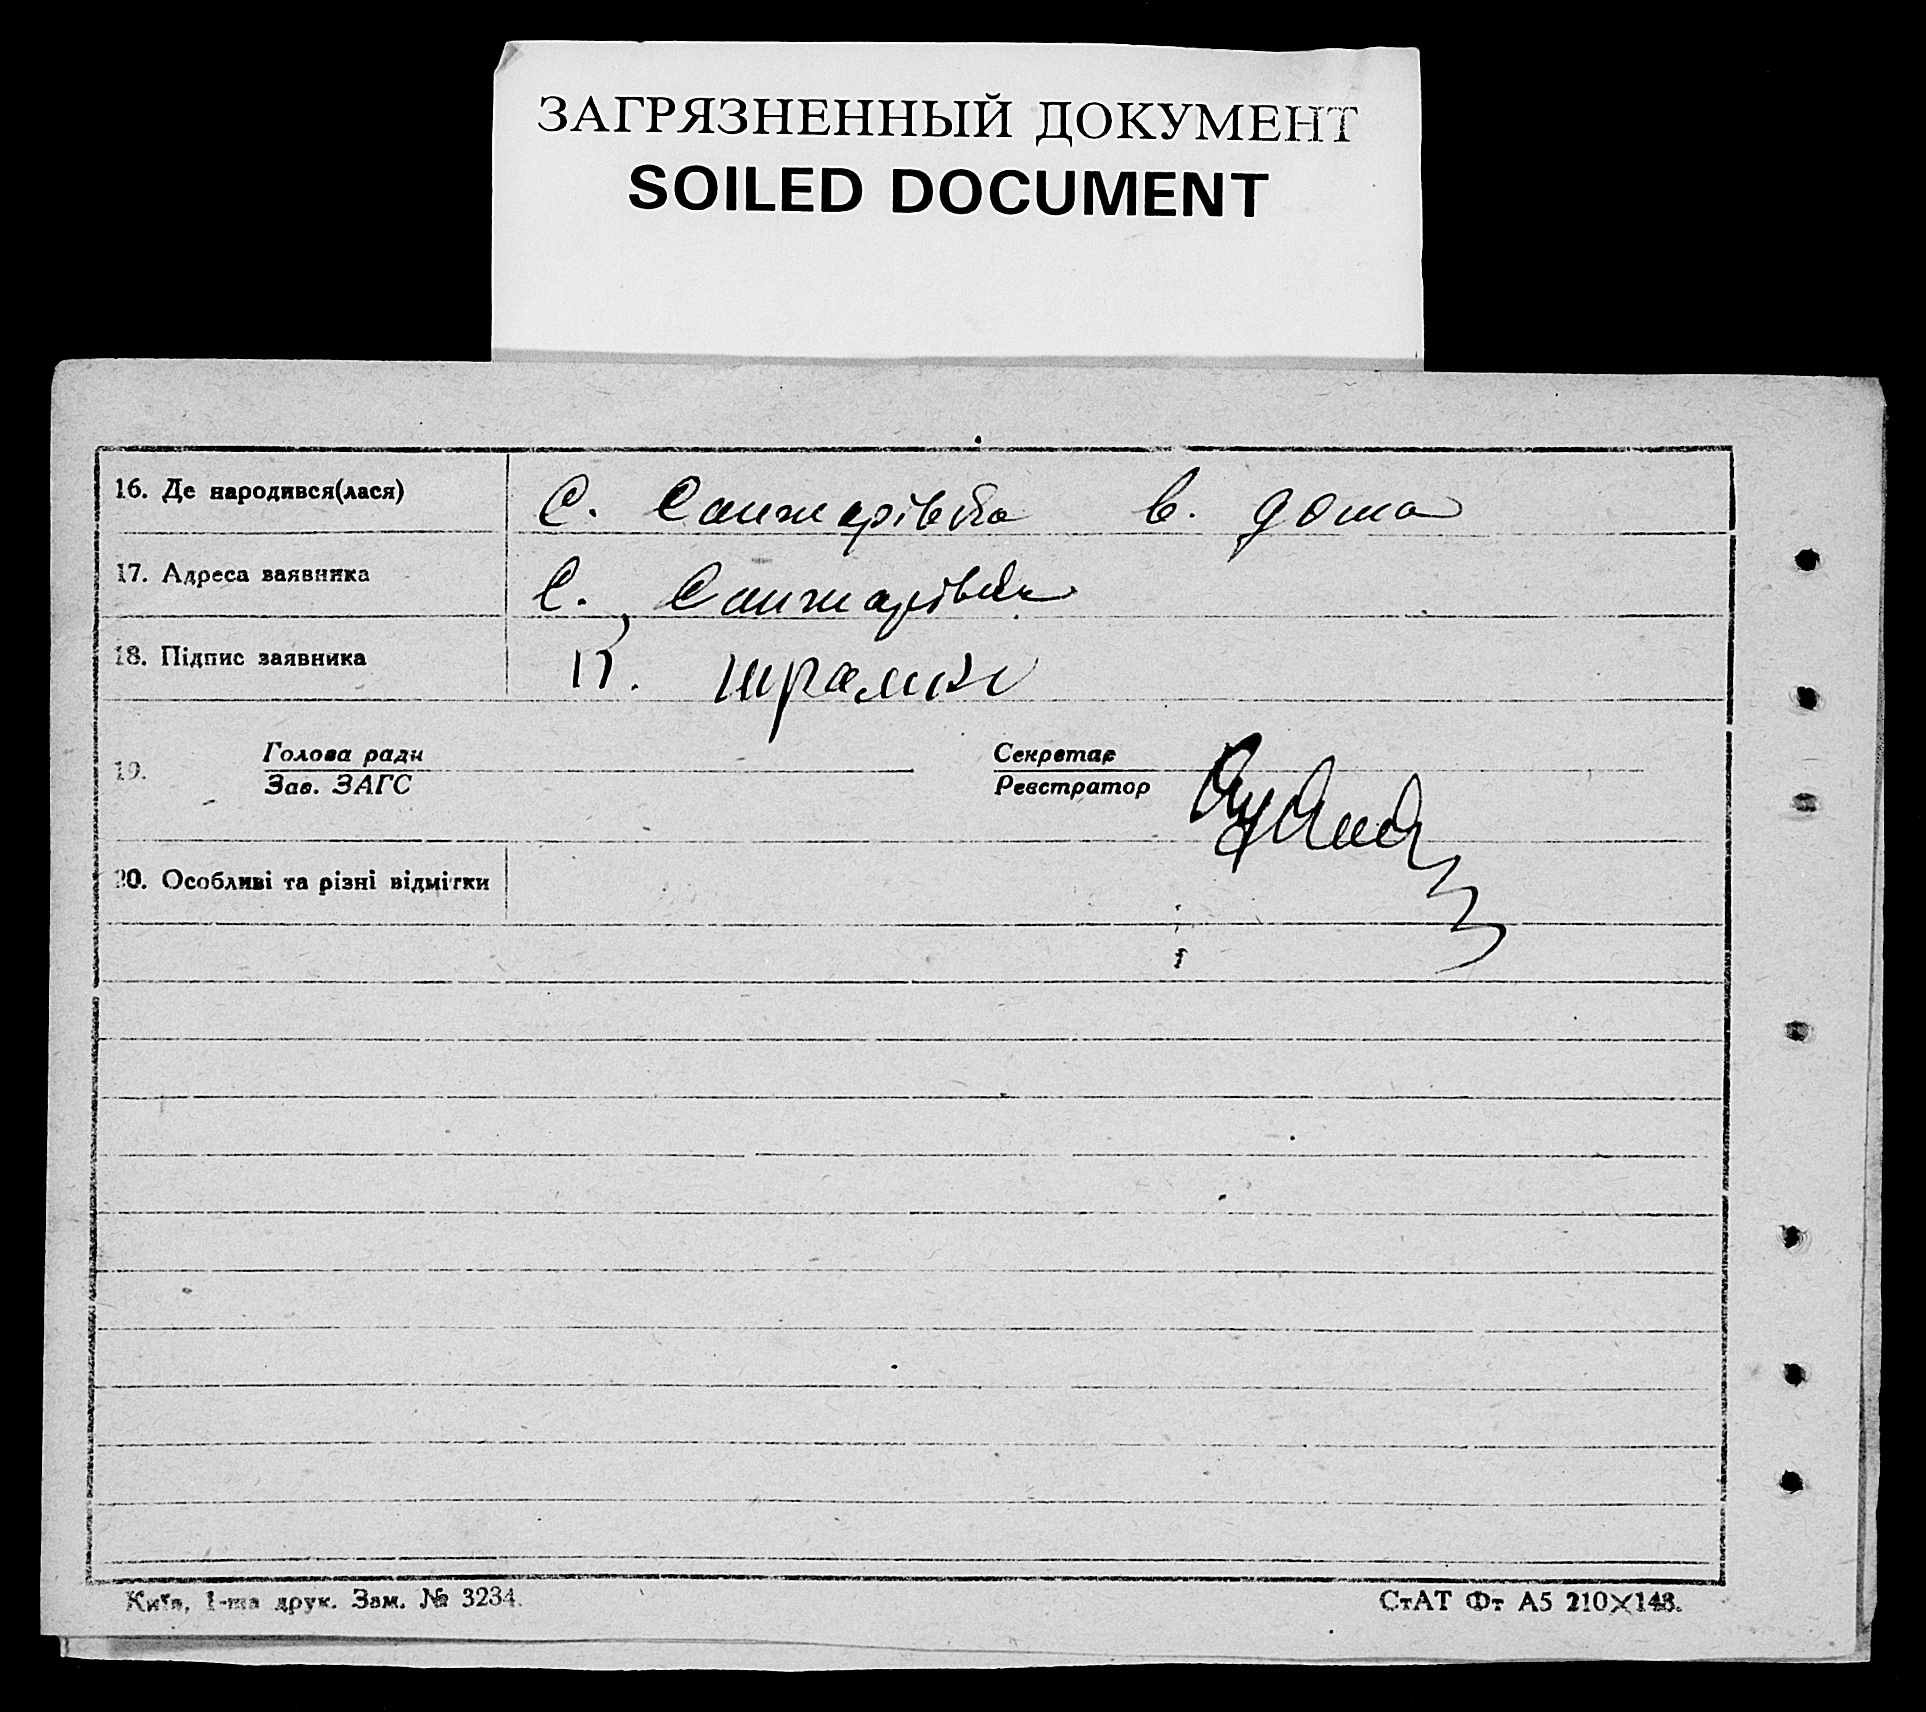 ЗАГРЯЗНЕННЫЙ ДОКУМЕНТ
SOILED DOCUMENT
16. Де народився(лася) С. Санжарівка в. дома
17. Адреса заявника С. Санжарівка
18. Підпис заявника
19. Голова ради Секретар
Зав. ЗАГС Реєстратор
20. Особливі та різні відмітки
Київ, 1-ша друк. Зам. № 3234.
СтАТ Фт А5 210×148.